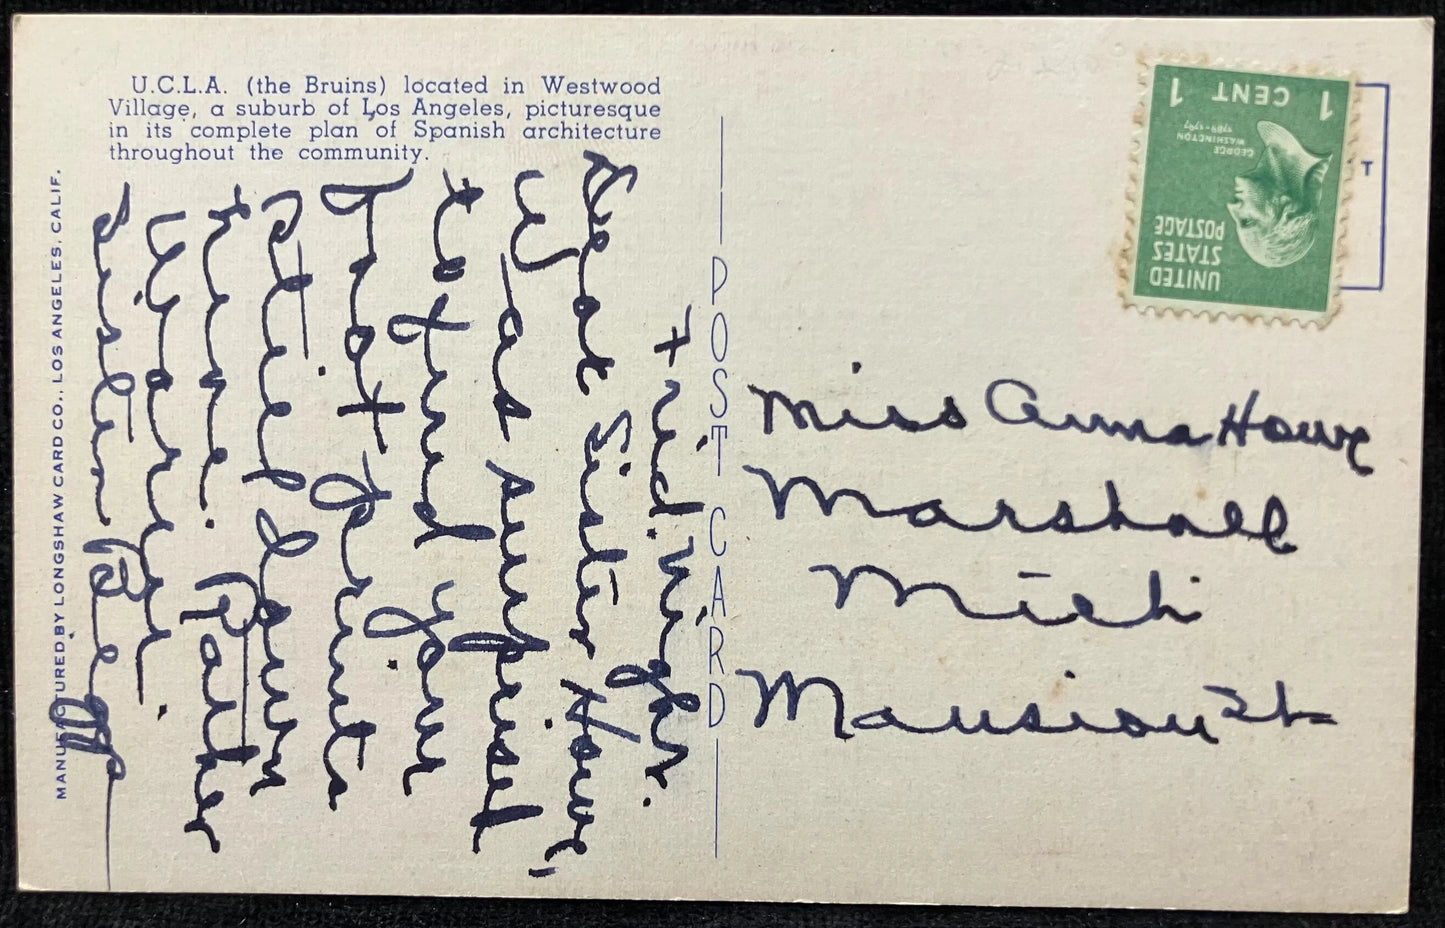 U.C.L.A. (the Bruins) located in Westwood
Village, a suburb of Los Angeles, picturesque
in its complete plan of Spanish architecture
throughout the community.
MANUFACTURED BY LONGSHAW CARD CO., LOS ANGELES, CALIF.
Frid. Night.
Dear Sister Howe,
Was surprised
to find your
foot prints
still down
here. Rather
Sister
POST CARD
UNITED
STATES
POSTAGE
GEORGE
WASHINGTON
1789-1797
1 CENT 1
T
Miss Anna Howe
Marshall
Mich
Mansion St